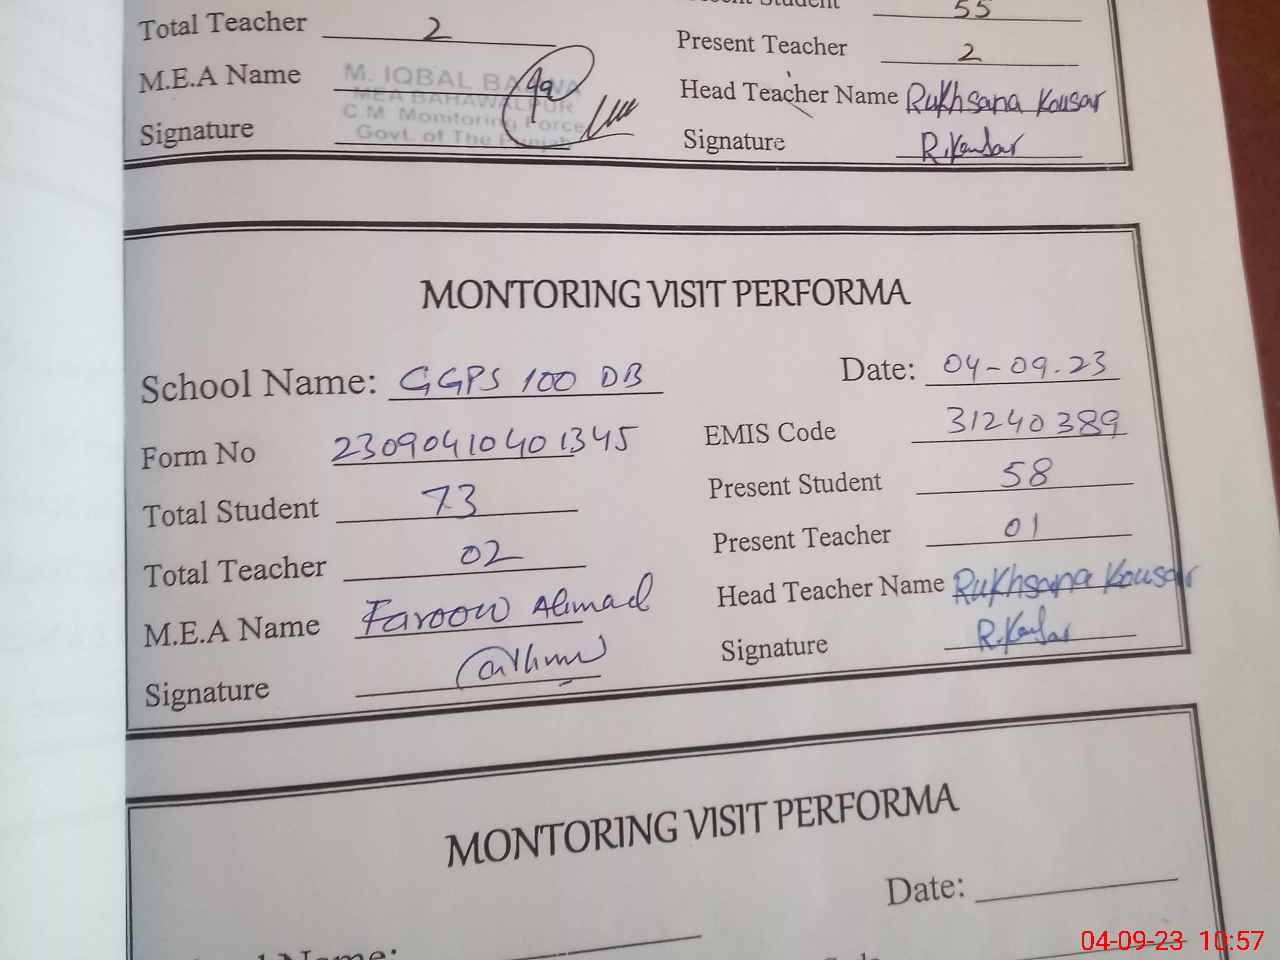 Total Teacher 2
Student 55
Present Teacher 2
M.E.A Name
M. IQBAL
MEA BAHAWALPUR
C.M Monitoring Force
Govt. of The Punjab
Head Teacher Name Rukhsana Kousar
Signature
Signature R.Kousar
MONTORING VISIT PERFORMA
School Name: GGPS 100 DB
Date: 04-09.23
Form No 2309041040 1345
EMIS Code 31240389
Total Student 73
Present Student 58
Total Teacher 02
Present Teacher 01
M.E.A Name Farooq Ahmad
Head Teacher Name Rukhsana Kousar
Signature
Signature R.Kousar
MONTORING VISIT PERFORMA
Date:
Name:
04-09-23 10:57